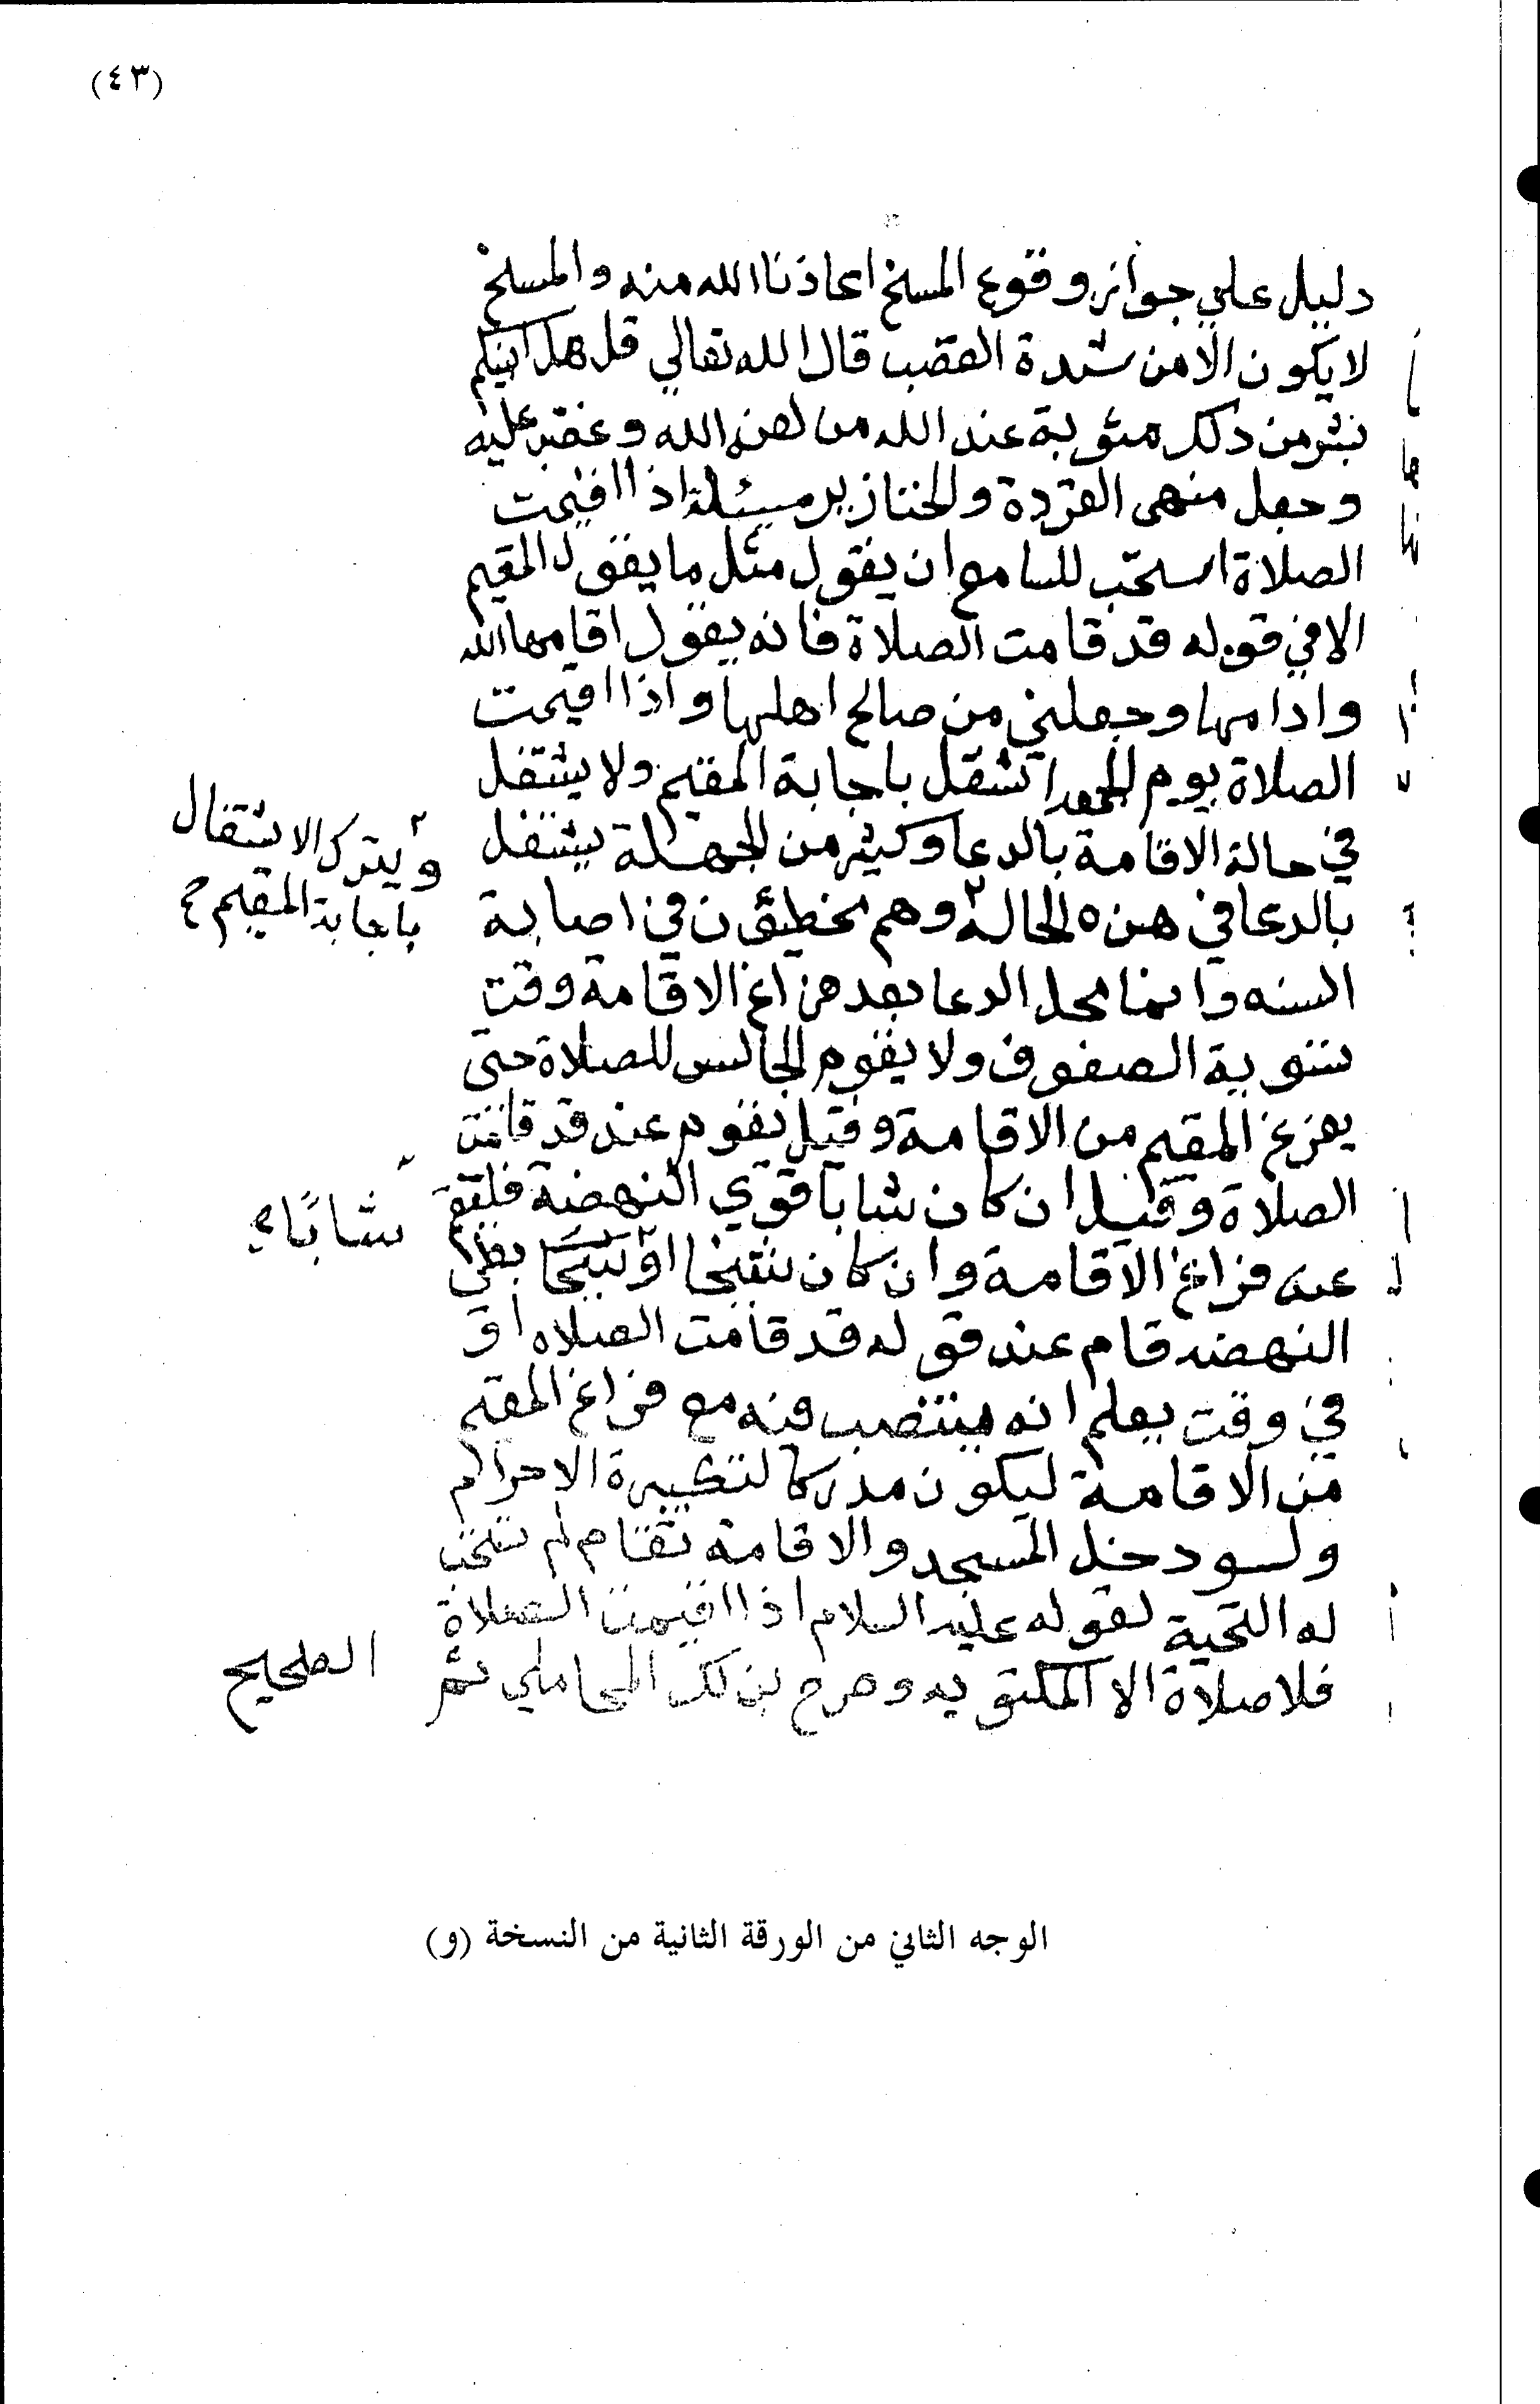 (٤٣)
دليل علي جواز وقوع المسخ اعاذنا الله منه والمسخ
لا يكون الا من شدة الغضب قال الله تعالي قل هل انبئكم
بشر من ذلك مثوبة عند الله من لعنه الله وغضب عليه
وجعل منهم القردة والخنازير مسئلة اذا اقيمت
الصلاة استحب للسامع ان يقول مثل ما يقول المقيم
الا في قوله قد قامت الصلاة فانه يقول اقامها الله
وادامها وجعلني من صالح اهلها واذا اقيمت
الصلاة يوم الجمعة اشتغل باجابة المقيم ولا يشتغل
في حالة الاقامة بالدعا وكثير من الجهلة يشتغل
بالدعا في هذه الحالة ٢ وهم مخطيؤن في اصابة
٢ ويترك الاشتغال
باجابة المقيم
السنه وانما محل الدعا بعد فراغ الاقامة وقت
تسوية الصفوف ولا يقوم الجالس للصلاة حتى
يفرغ المقيم من الاقامة وقيل يقوم عند قد قامت
الصلاة وقيل ان كان شابا قوي النهضة فليقم
شابًا
عند فراغ الاقامة وان كان شيخا او بطئ
النهضه قام عند قوله قد قامت الصلاه او
في وقت يعلم انه ينتصب فيه مع فراغ المقيم
من الاقامة ليكون مدركا لتكبيرة الاحرام
ولو دخل المسجد والاقامة تقام لم تستحب
له التحية لقوله عليه السلام اذا اقيمت الصلاة
فلا صلاة الا المكتوبه وصرح بذلك المحاملي ثم
الصحيح
الوجه الثاني من الورقة الثانية من النسخة (و)